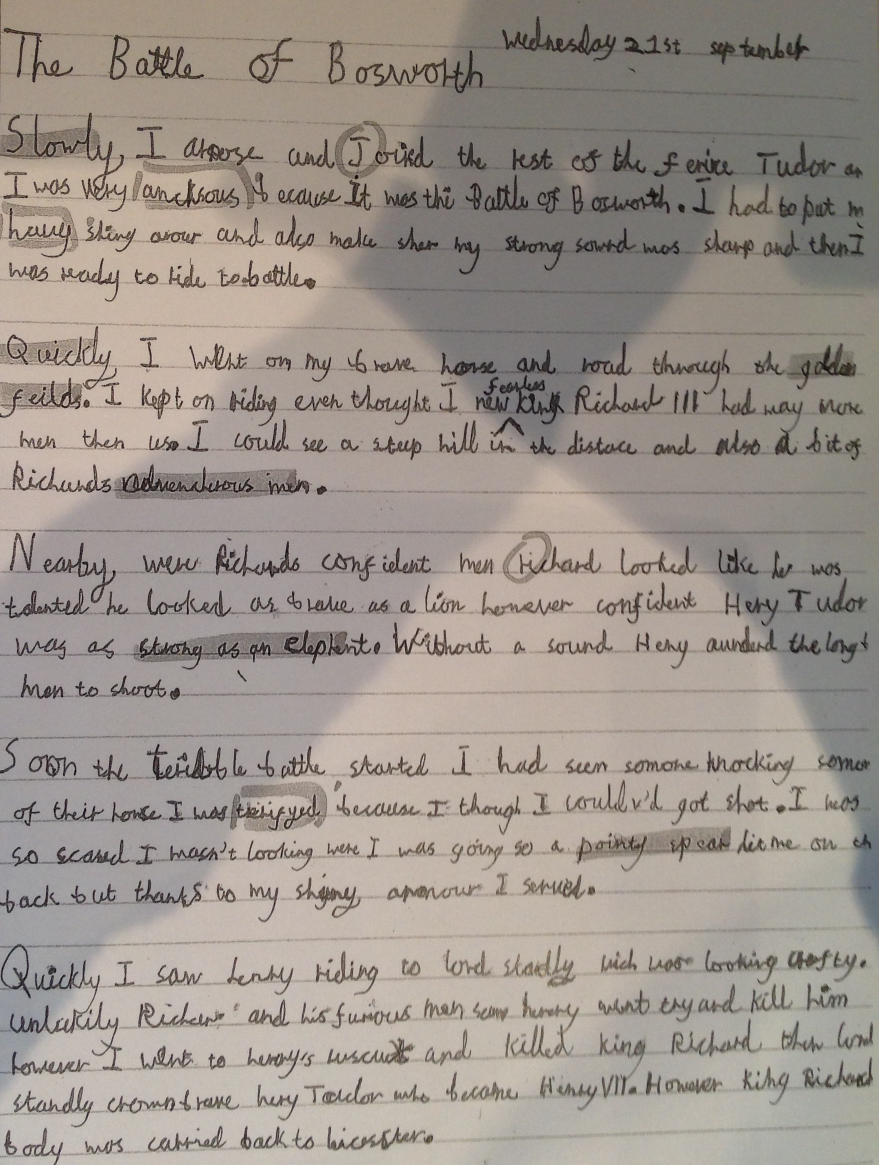 The Battle of Bosworth Wednesday 21st september
Slowly, I aroose and Joied the rest of the ferice Tudor
I was very ancksous because it was the Battle of Bosworth. I had to put
havy shiny arour and also make sher my strong sowrd was sharp and then I
was ready to ride to battle.
Quickly, I went on my brave horse and road through the golden
feilds. I kept on riding even thought I new fearless king Richard III had may more
men then us. I could see a steep hill in the distace and also a bit of
Richards men.
Nearby, were Richards confident men richard looked like he was
talented he looked as brave as a lion however confident Hery Tudor
was as strong as an elephent. Without a sound Heny the
men to shoot.
Soon the terible battle started I had seen somone knocking
of their horse I was terifyed because I though I could v'd got shot. I was
so scared I wasn't looking were I was going so a pointy spear me on
back but thanks to my shiny, I
Quickly I saw henry riding to lord standly wich was looking crafty.
unlukily and his furious men went try and kill him
however I went to henry's and killed king Richard then lord
standly crown brave hery Tudor who become Henry VII. However King Richard
body was carried back to